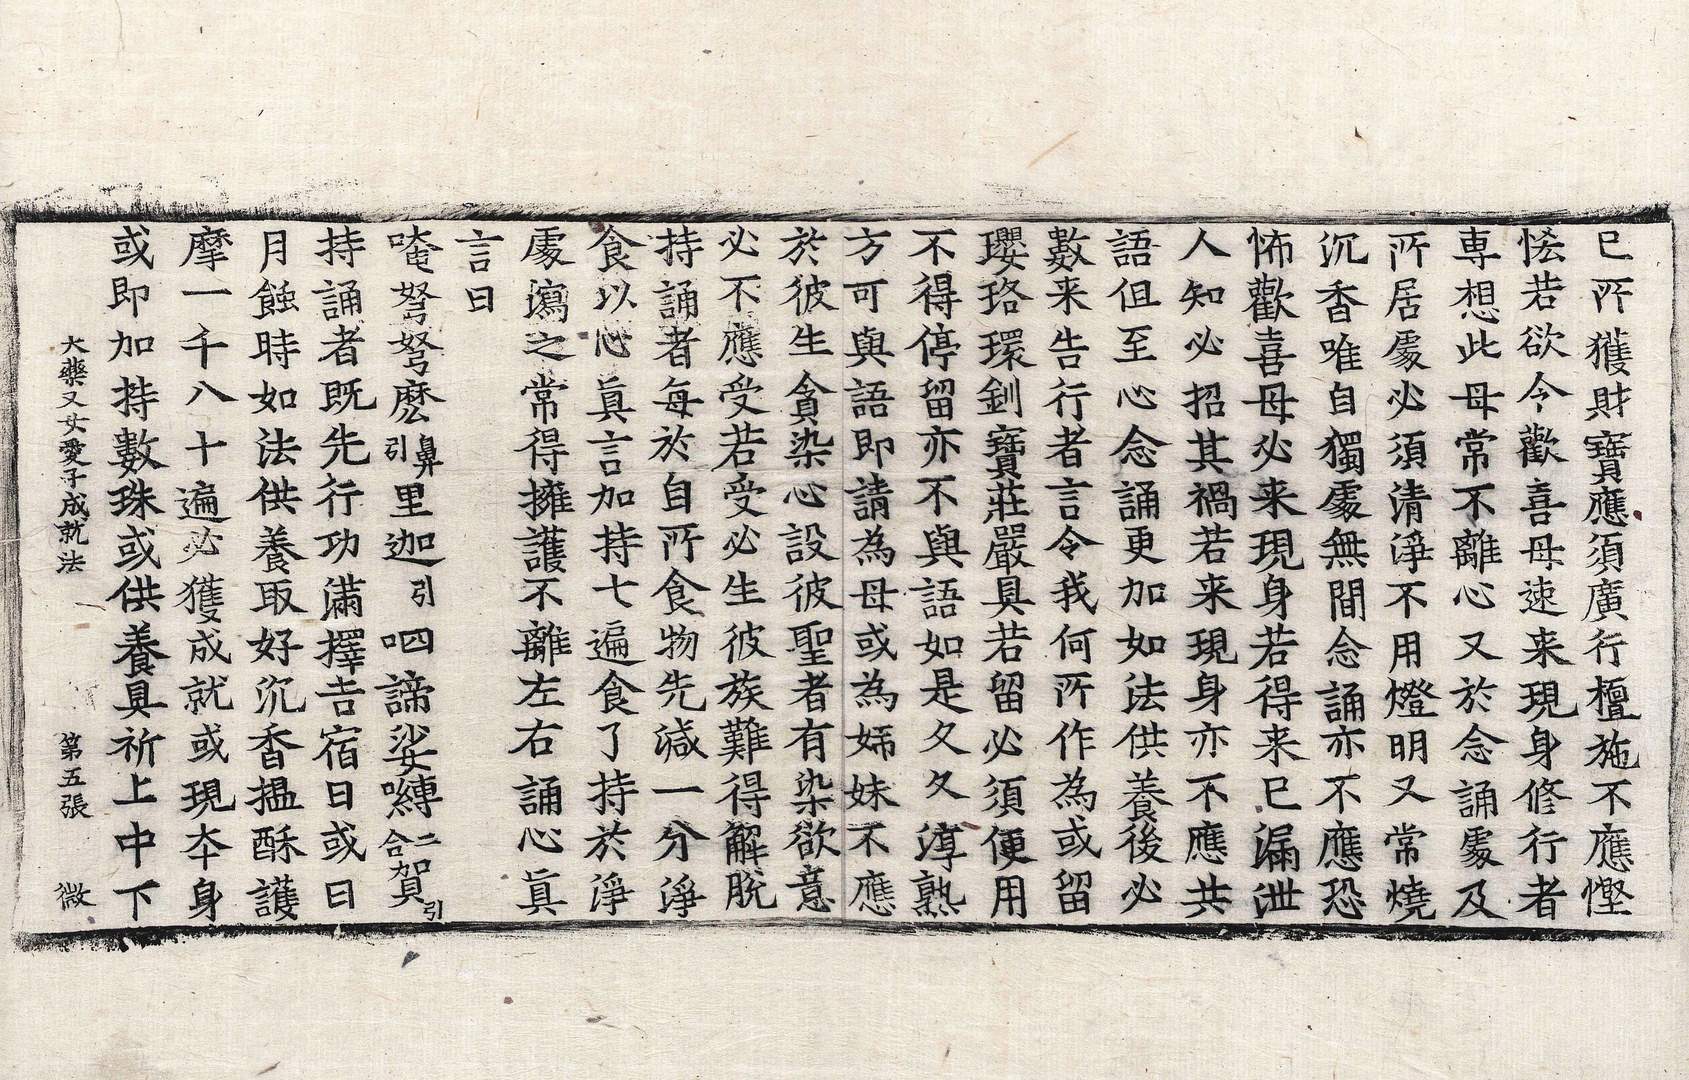 已所獲財寶應須廣行檀施不應慳
悋若欲令歡喜母速来現身修行者
專想此母常不離心又於念誦處及
所居處必須清淨不用燈明又常燒
沉香唯自獨處無間念誦亦不應恐
怖歡喜母必来現身若得来已漏泄
人知必招其禍若来現身亦不應共
語但至心念誦更加如法供養後必
數来告行者言令我何所作為或留
瓔珞環釧寶莊嚴具若留必須便用
不得停留亦不與語如是久久淳熟
方可與語即請為母或為姊妹不應
於彼生貪染心設彼聖者有染欲意
必不應受若受必生彼族難得解脫
持誦者每於自所食物先減一分淨
食以心真言加持七遍食了持於淨
處瀉之常得擁護不離左右誦心真
言曰
唵弩弩麽鼻引里迦引呬諦娑嚩二合賀引
持誦者既先行功滿擇吉宿日或日
月蝕時如法供養取好沉香搵酥護
摩一千八十遍必獲成就或現本身
或即加持數珠或供養具祈上中下
大藥叉女愛子成就法 第五張 微